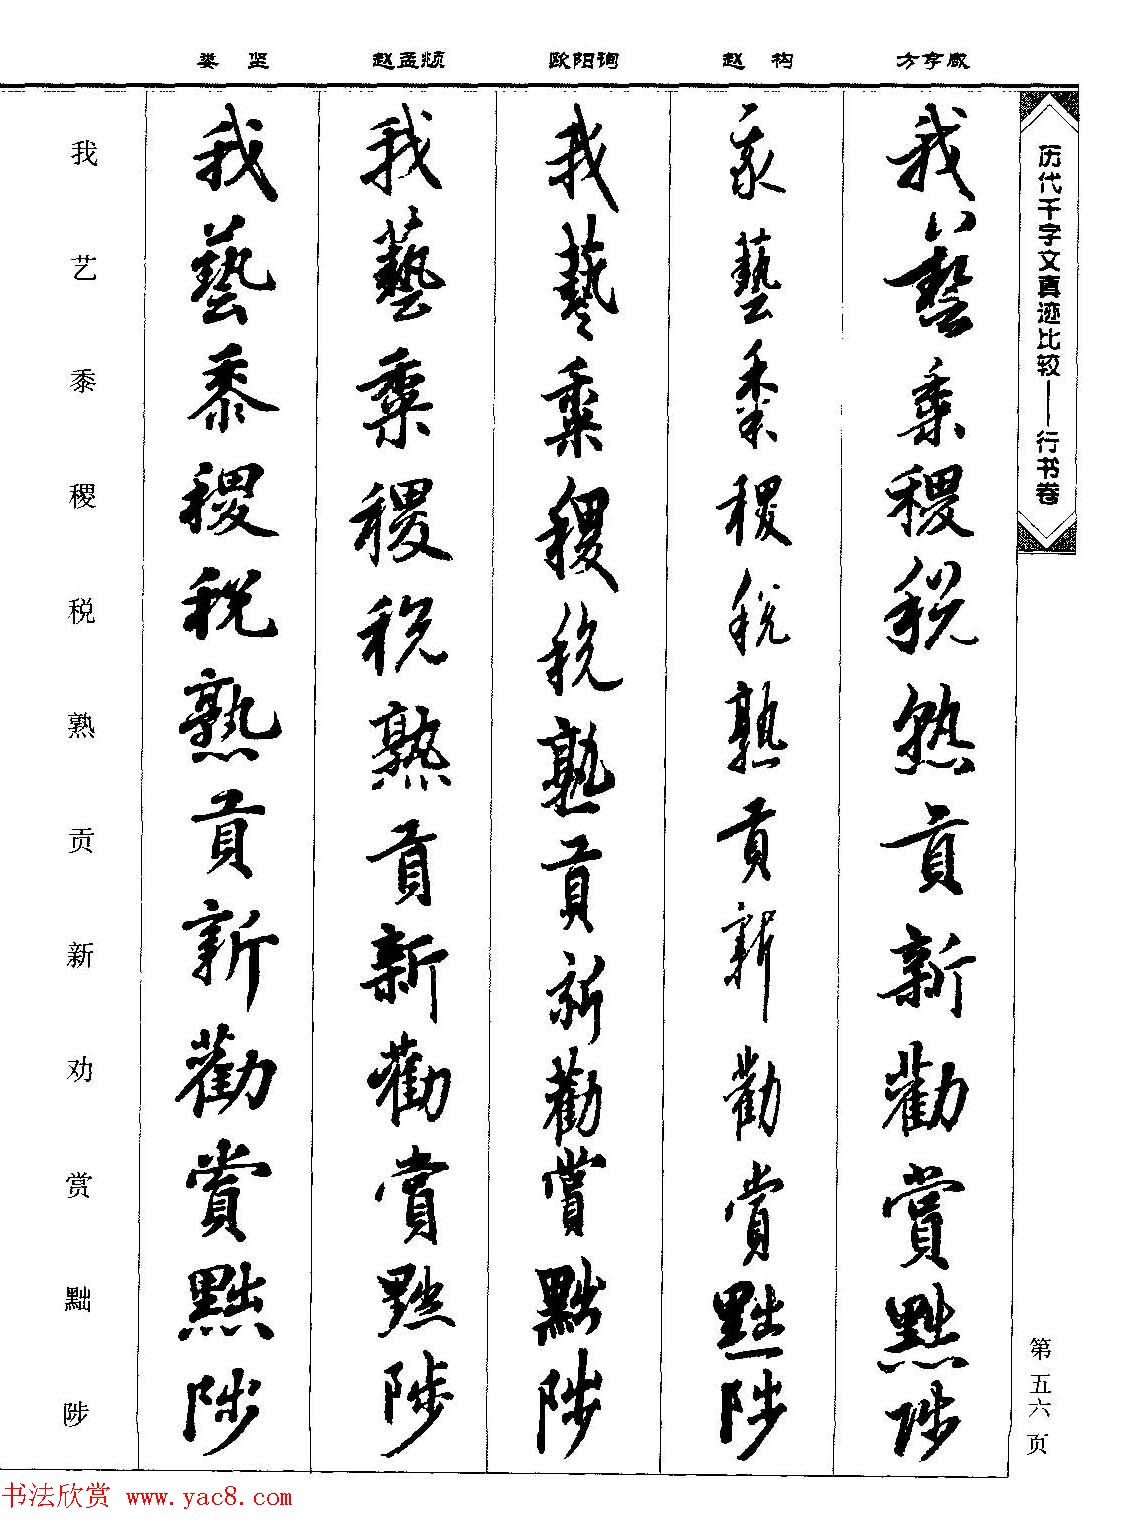 娄坚 赵孟頫 欧阳询 赵构 方孝咸
历代千字文真迹比较——行书卷
我藝黍稷税熟貢新勸賞黜陟
我藝黍稷税熟貢新勸賞黜陟
我藝黍稷税熟貢新勸賞黜陟
我藝黍稷税熟貢新勸賞黜陟
我藝黍稷税熟貢新勸賞黜陟
我艺黍稷税熟贡新劝赏黜陟
第五六页
书法欣赏 www.yac8.com